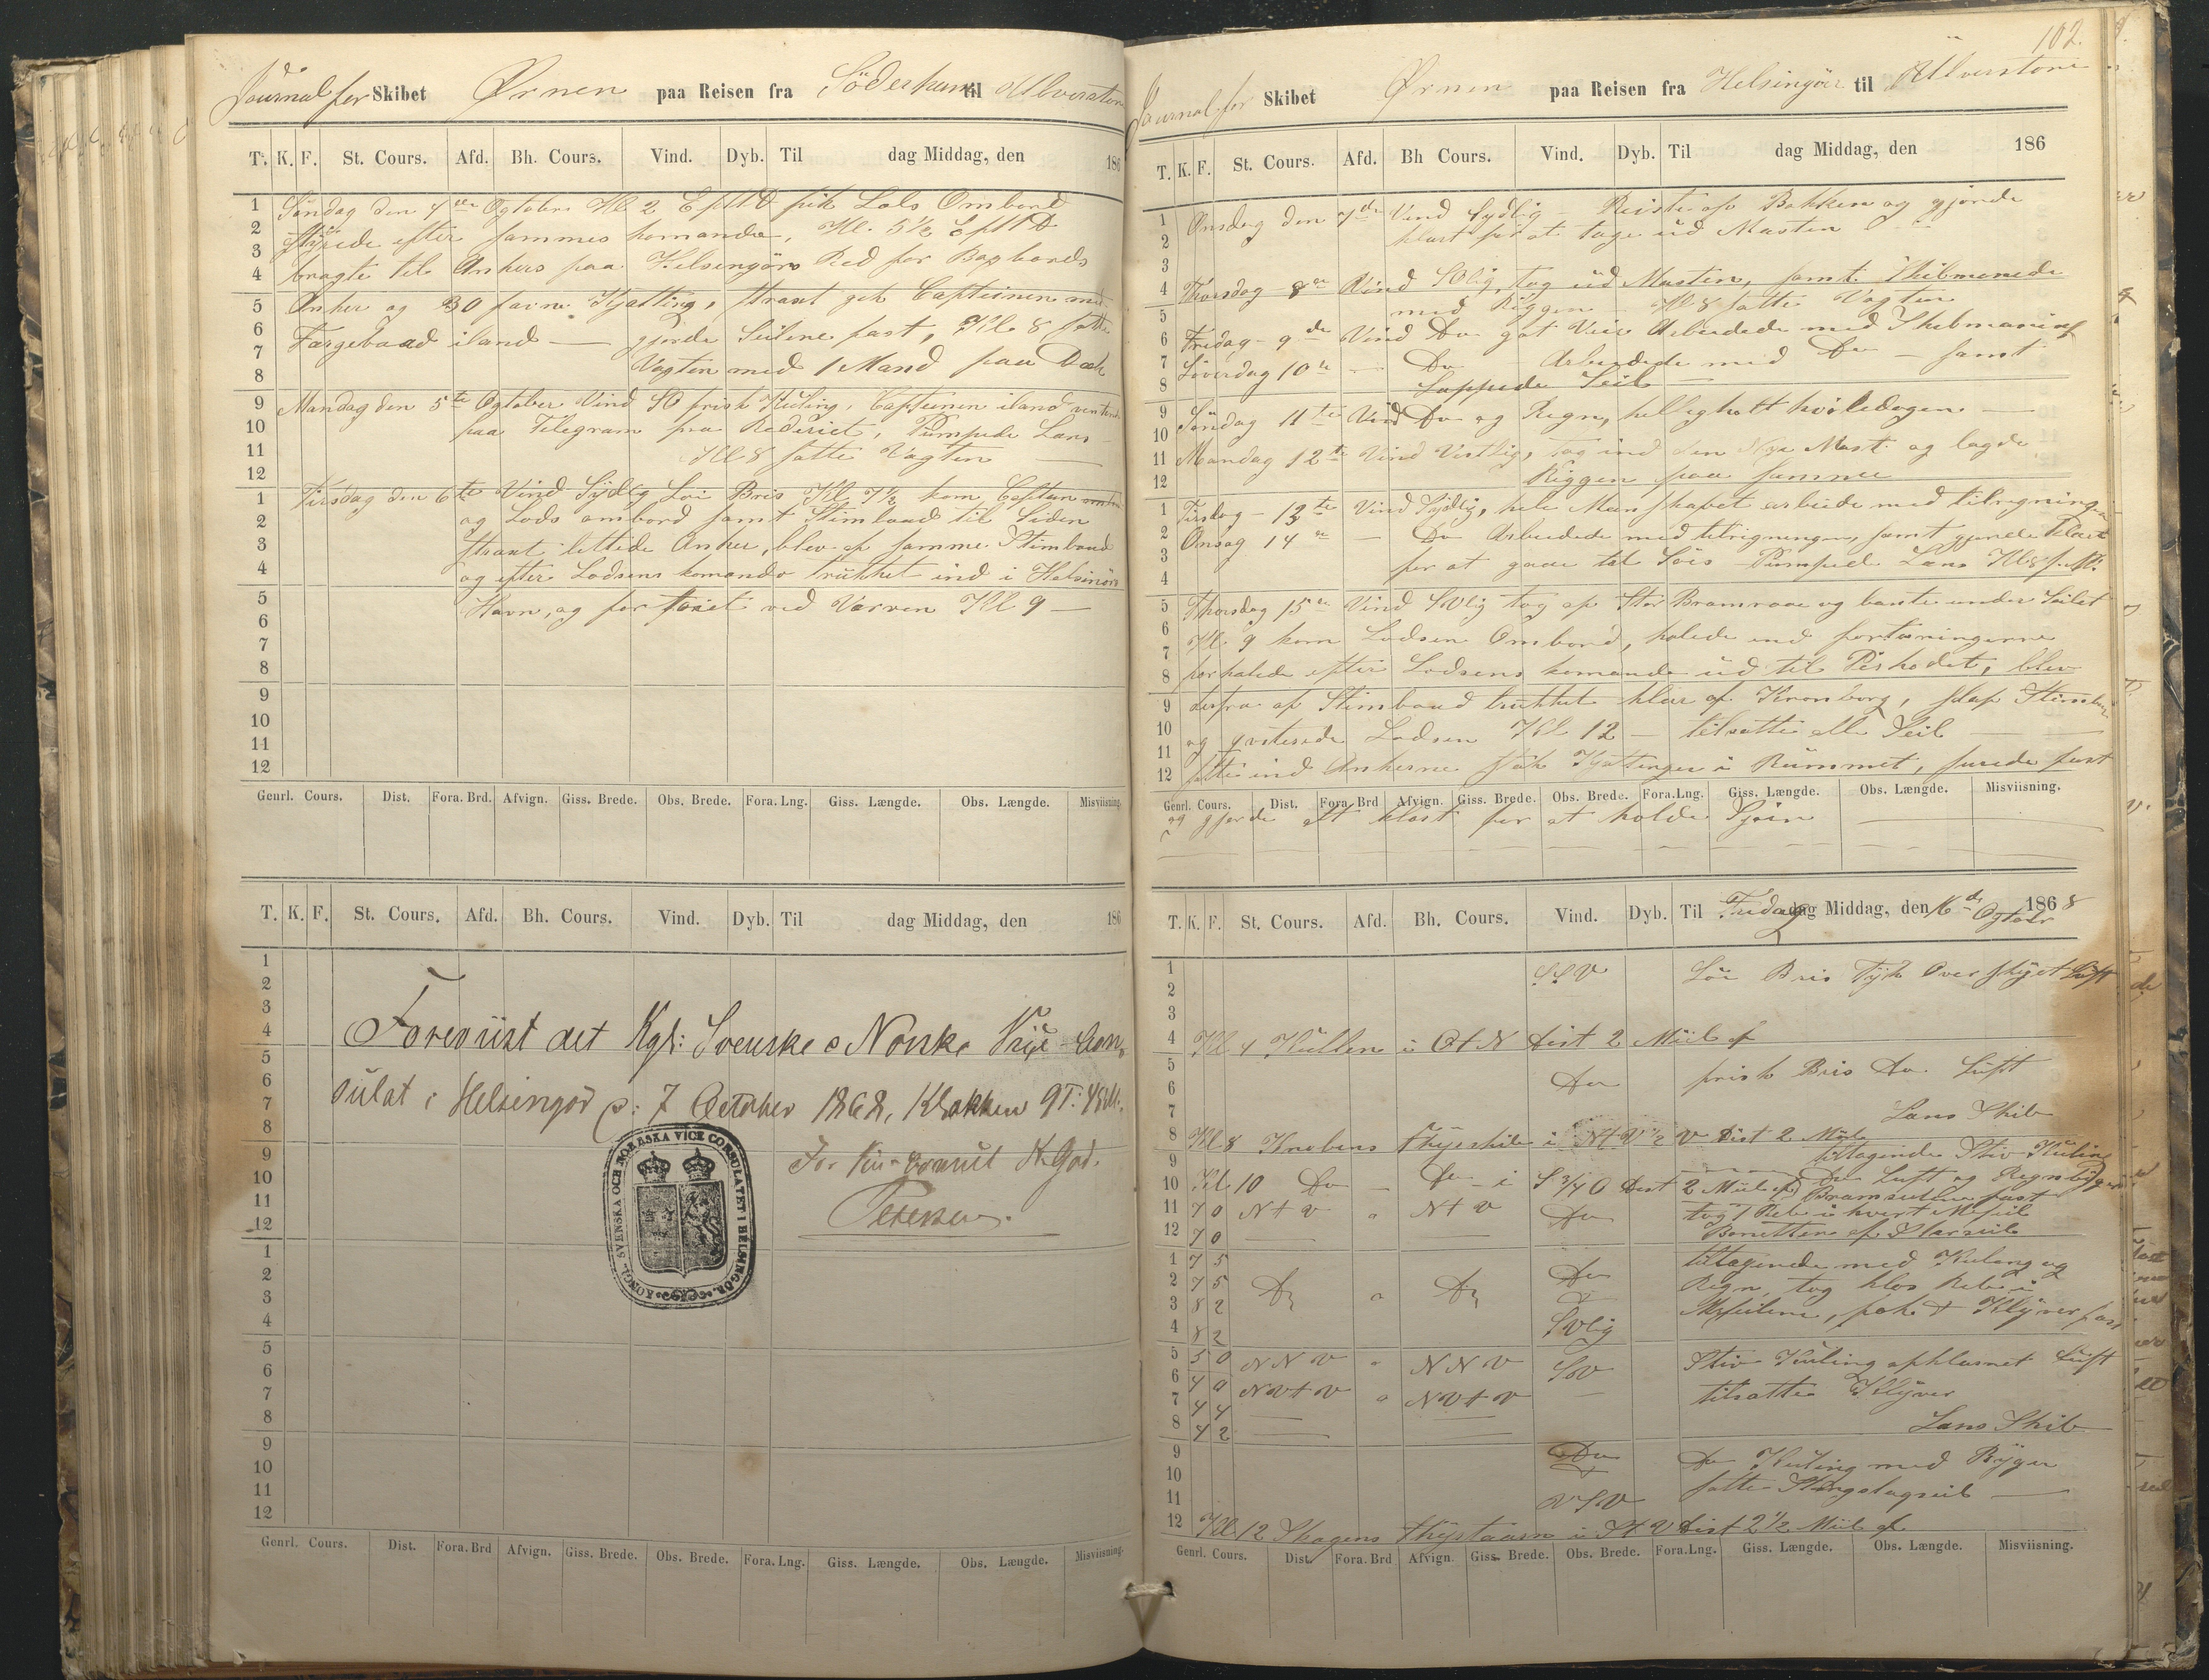 Journal for Skibet Ørnen paa Reisen fra Söderhamn til Ulverston
T. K. F. St. Cours. Afd. Bh. Cours. Vind. Dyb. Til dag Middag, den 186
Søndag den 4de Ogtober Kl 2 EfttD fik Lods Ombord
styrede efter sammes komando, Kl. 5½ EfttD
bragte til Ankers paa Helsengörs Red for Bagbords
Anker og 30 favne Kjætting, straxt gik Capteinen med
Færgebaad iland — gjorde Seilene fast, Kl 8 satte
Vagten med 1 Mand paa Dæk
Mandag den 5te Ogtober Vind SO frisk Kuling, Capteinen iland ventende
paa Telegram fra Rederiet, Pumpede Læns
Kl 8 satte Vagten —
Tirsdag den 6te Vind Sydlig Löi Bris Kl. 7½ kom Captein ombord
og Lods ombord samt Stimbaad til Siden
straxt lettede Anker, blev af samme Stimbaad
og efter Lodsens komando trukket ind i Helsinörs
Havn, og for töiet ved Værven Kl 9 —
1
2
3
4
5
6
7
8
9
10
11
12
1
2
3
4
5
6
7
8
9
10
11
12
Genrl. Cours. Dist. Fora. Brd. Afvign. Giss. Brede. Obs. Brede. Fora. Lng. Giss. Længde. Obs. Længde. Misviisning.
T. K. F. St. Cours. Afd. Bh. Cours. Vind. Dyb. Til dag Middag, den 186
1
2
3
4
5
6
7
8
9
10
11
12
1
2
3
4
5
6
7
8
9
10
11
12
Foreviist det Kgl: Svenske o Norske Vice Con-
sulat i Helsingör d: 7 October 1868, Klokken 9 T: 45 M:
For Vice-Consul
Petersen.
KONGL. SVENSKA OCH NORRSKA VICE CONSULATET I HELSINGÖR.
Genrl. Cours. Dist. Fora. Brd Afvign. Giss. Brede. Obs. Brede. Fora. Lng. Giss. Længde. Obs. Længde. Misviisning.
102.
Journal for Skibet Ørnen paa Reisen fra Helsingör til Ulverstone
T. K. F. St. Cours. Afd. Bh Cours. Vind. Dyb. Til dag Middag, den 186
Onsdag den 7de Vind Sydlig — Reiste op Bokken og gjorde
klart for at tage ud Masten
Thorsdag 8de Vind SOlig, tog ud Masten, samt Skibmanede
med Riggen — Kl 8 satte Vagten
Fredag - 9de Vind Do got Veir Arbeidede med Skibmaning
Löverdag 10de — Do Arbeidede med Do — samt
Lappede Seil —
Söndag 11te Vind Do og Regn, helligholt hviledagen —
Mandag 12te Vind Vestlig, tog ind den Nye Mast og lagde
Riggen paa samme
Tirsdag - 13te Vind Sydlig, hele Manskabet arbeide med tilregningen
Onsdag 14de — Do Arbeidede med tilrigningen, samt gjorde klart
for at gaae til Söis Pumped Læns Kl 8
Thorsdag 15de Vind SVlig tog op Stor Bramraae og bante under Seilet
Kl. 9 kom Lodsen Ombord, halede ind fortöiningerne
forhalede efter Lodsens komando ud til Pirhodet, blev
derfra af Stimbaad trukket klar af Kronborg, slap Stimbaad
og qvitterede Lodsen Kl 12 — tilsatte alle Seil —
satte ind Ankerne stak Kjættinger i Rummet, surede fast
Genrl. Cours. Dist. Fora Brd Afvign. Giss. Brede. Obs. Brede. Fora. Lng. Giss. Længde. Obs. Længde. Misviisning.
og gjorde alt klart for at holde Sjöen
T. K. F. St. Cours. Afd. Bh. Cours. Vind. Dyb. Til Fredag dag Middag, den 16de Ogtobr 1868
SSV Löi Bris Tyk Overskyet Luft
Kl 4 Kullen i OtN Dist 2 Miil af
Do frisk Bris Do Luft
Læns Skib
Kl 8 Knobens Fhyrskib i NtV½V Dist 2 Miil
tiltagende Stiv Kuling
Kl 10 Do — Do i S¾O Dist 2 Miil af Do Luft og Regnbyger
Bramseilene fast
11 7 0 NtV " NtV Do tog 1 Reb i hvert Mrseil
12 7 0 Bonetten af Storseil
1 7 5 Do tiltagende med Kuling og
2 7 5 Do " Do Regn tog klos Reb i
3 8 2 Mrseilene, fok & Klyver fast
4 8 2 SVlig
5 5 0 NNV " NNV SV Stiv Kuling opklarnet Luft
6 4 0 NVtV " NVtV — tilsatte Klyver
7 4 4
8 4 2 Læns Skib
9 Do Do Kuling med Byger
10 satte Stængstagseil —
11 VSV
12 Kl 12 Skagens Fhyrtaarn i StV Dist 2½ Miil af
Genrl. Cours. Dist. Fora. Brd Afvign. Giss. Brede. Obs. Brede. Fora. Lng. Giss. Længde. Obs. Længde. Misviisning.